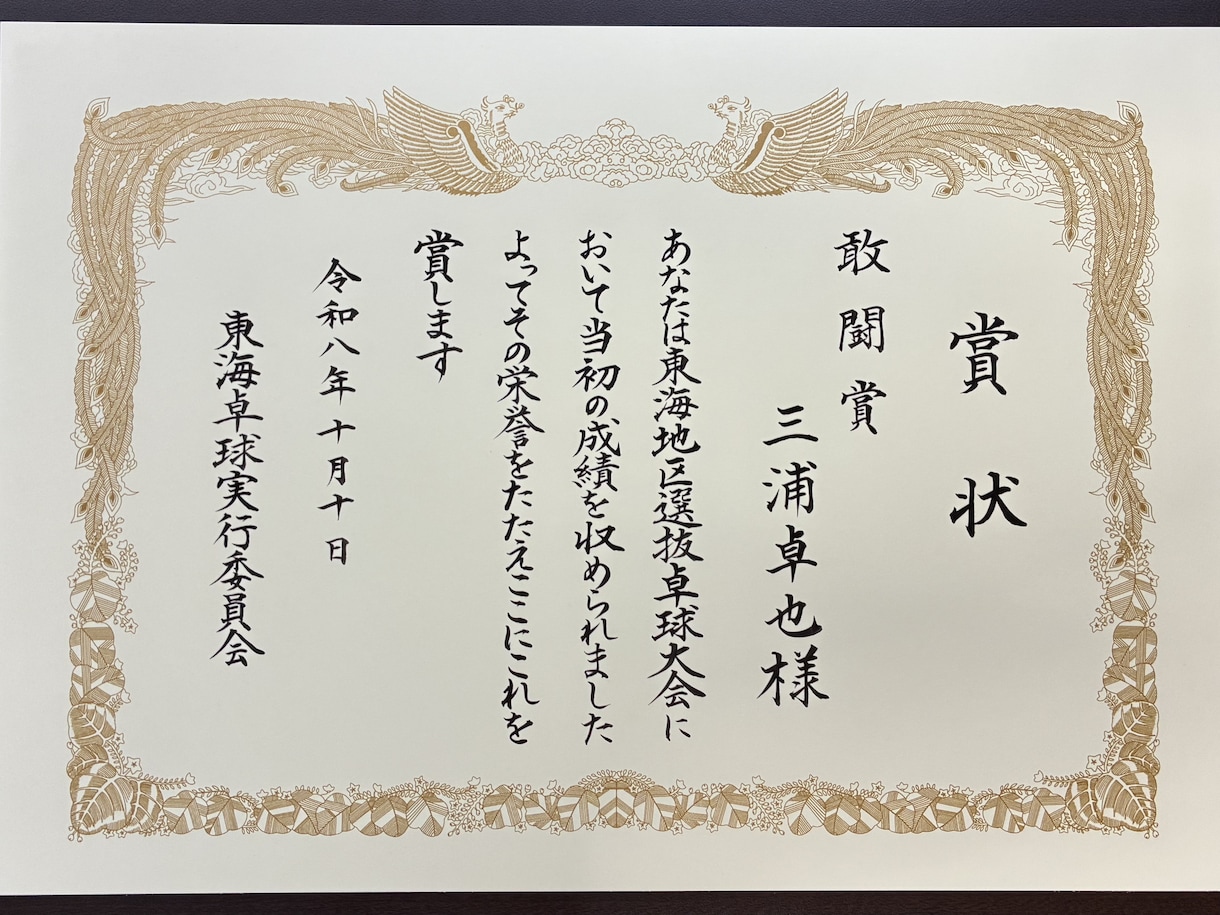 賞状
敢闘賞
三浦卓也様
あなたは東海地区選抜卓球大会に
おいて当初の成績を収められました
よってその栄誉をたたえここにこれを
賞します
令和八年十月十日
東海卓球実行委員会